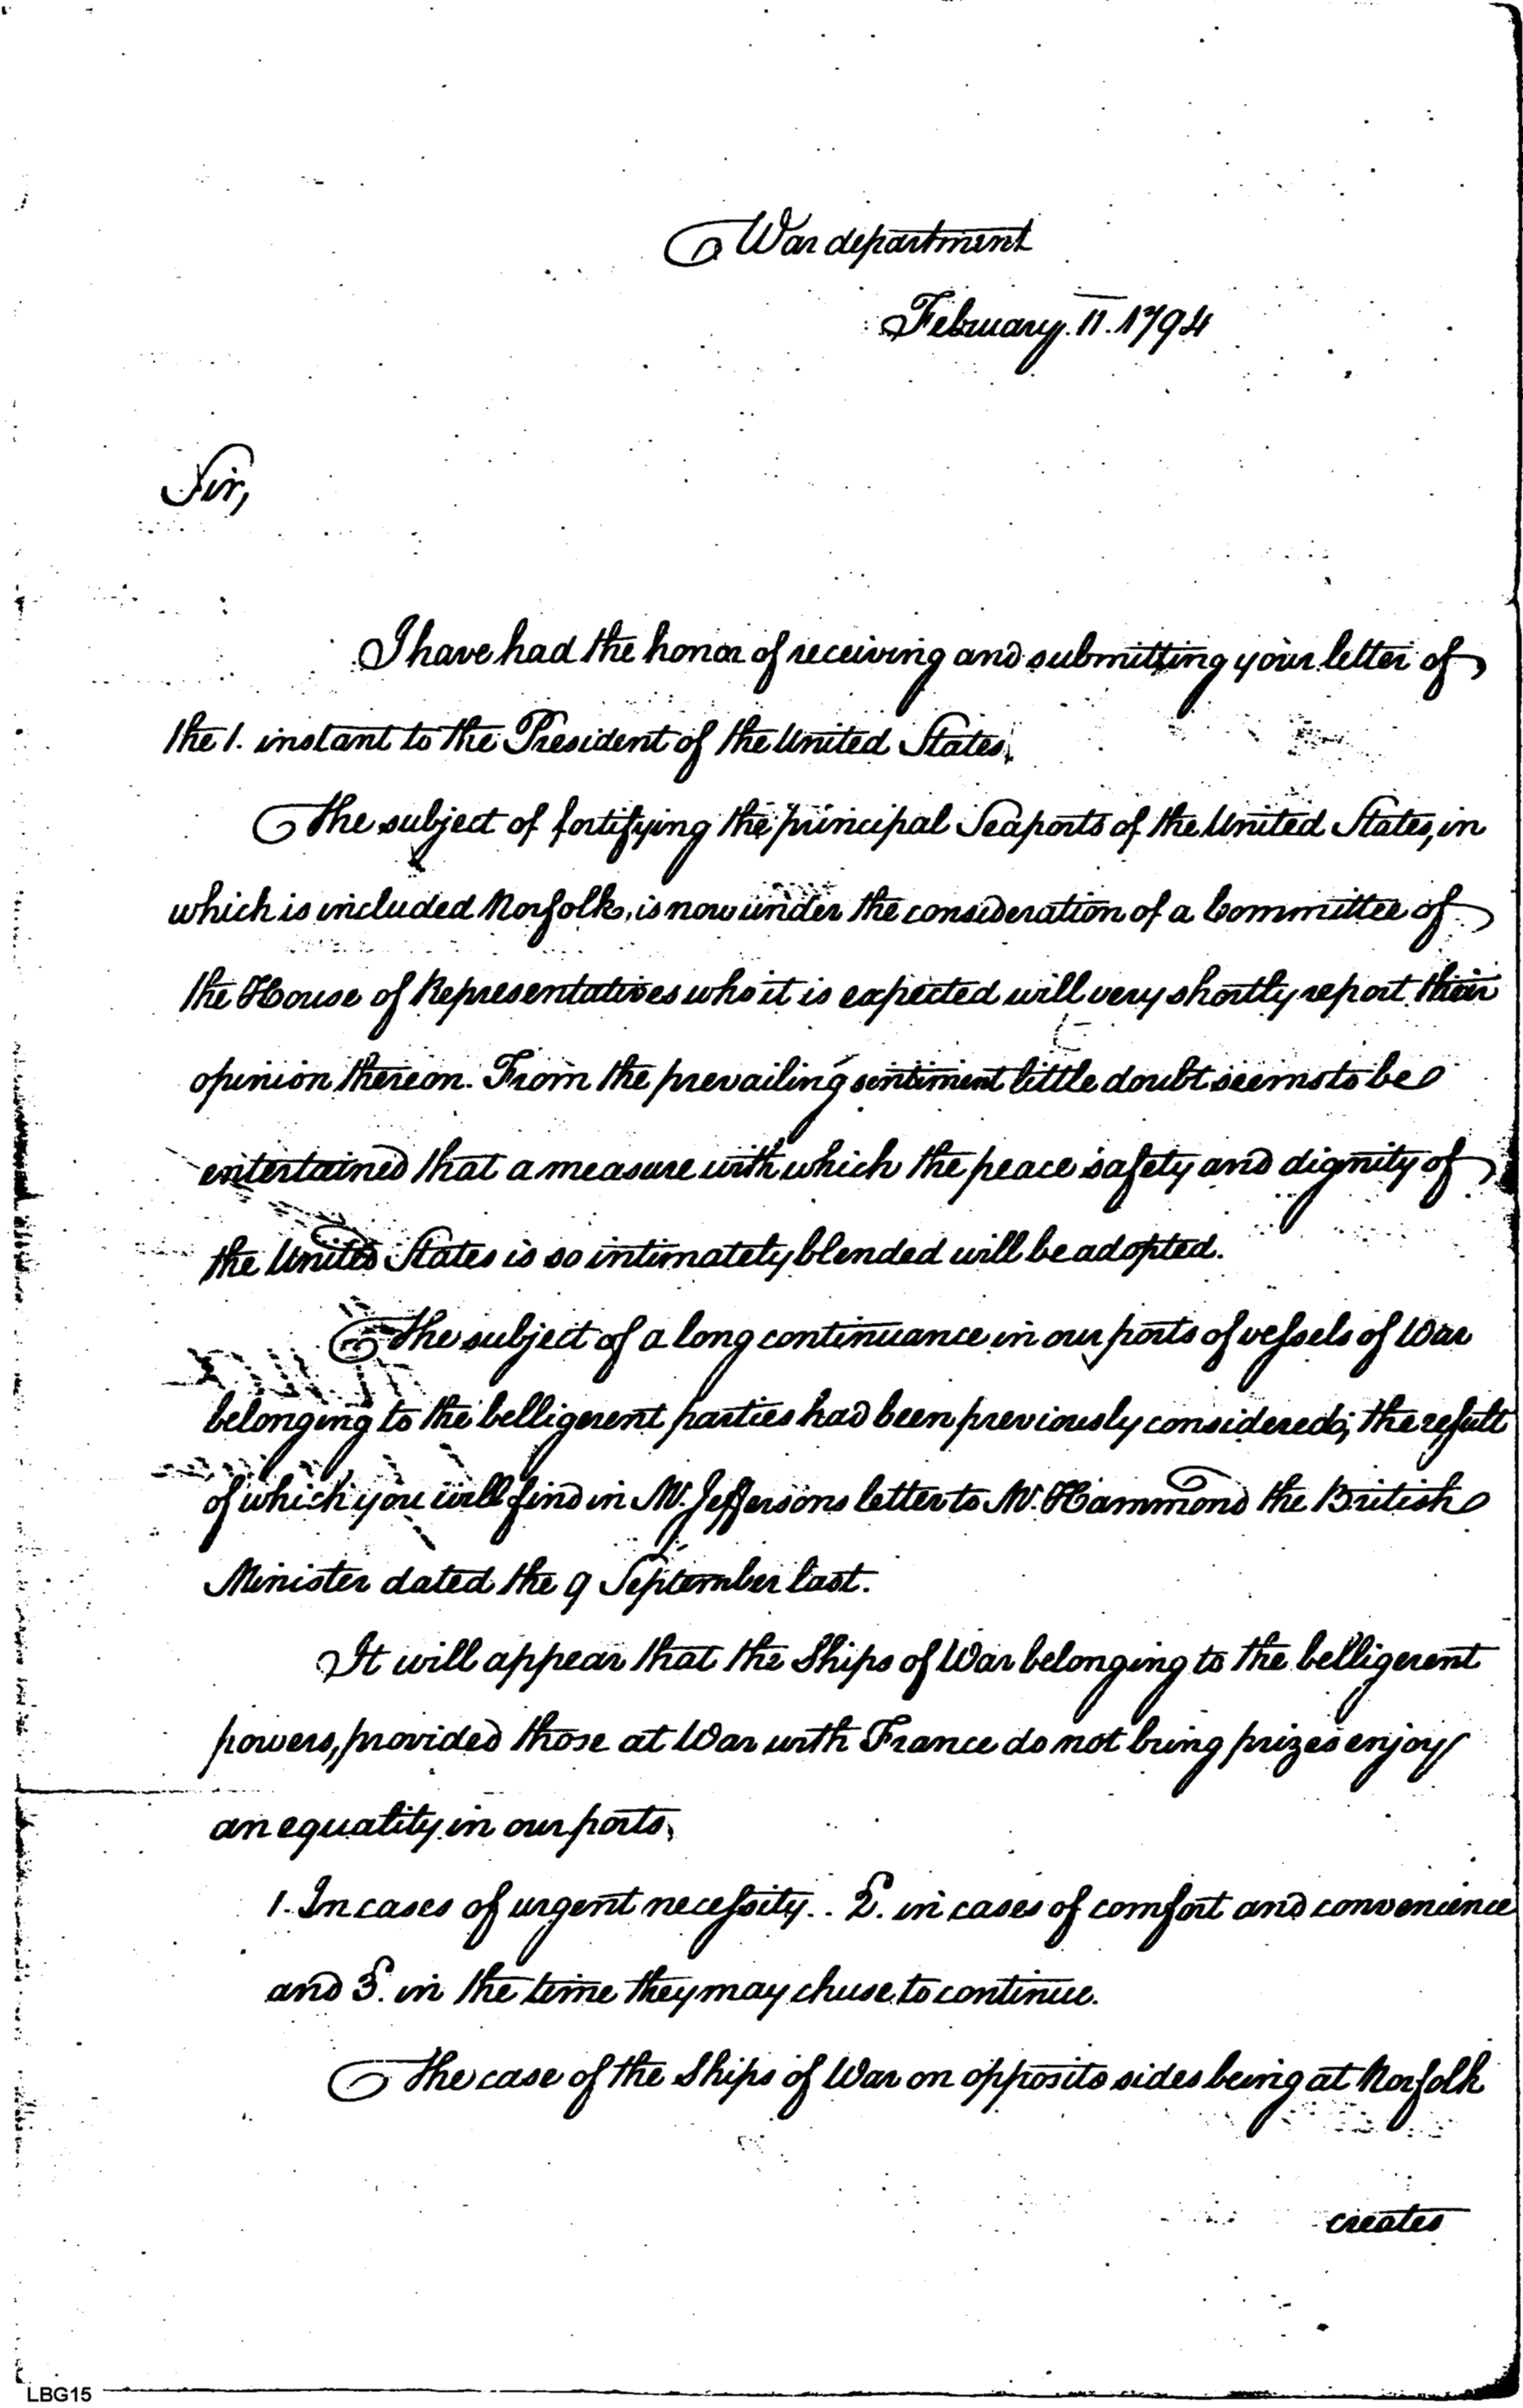 War department
February. 11. 1794
Sir,
I have had the honor of receiving and submitting your letter of
the 1. instant to the President of the United States.
The subject of fortifying the principal Seaports of the United States, in
which is included Norfolk, is now under the consideration of a Committee of
the House of Representatives who it is expected will very shortly report their
opinion thereon. From the prevailing sentiment little doubt seems to be
entertained that a measure with which the peace safety and dignity of
the United States is so intimately blended will be adopted.
The subject of a long continuance in our ports of vessels of War
belonging to the belligerent parties had been previously considered; the result
of which you will find in Mr. Jeffersons letter to Mr. Hammond the British
Minister dated the 9 September last.
It will appear that the Ships of War belonging to the belligerent
powers, provided those at War with France do not bring prizes enjoy
an equality in our ports,
1. In cases of urgent necessity.. 2. in cases of comfort and convenience
and 3. in the time they may chuse to continue.
The case of the Ships of War on opposite sides being at Norfolk
creates
LBG15